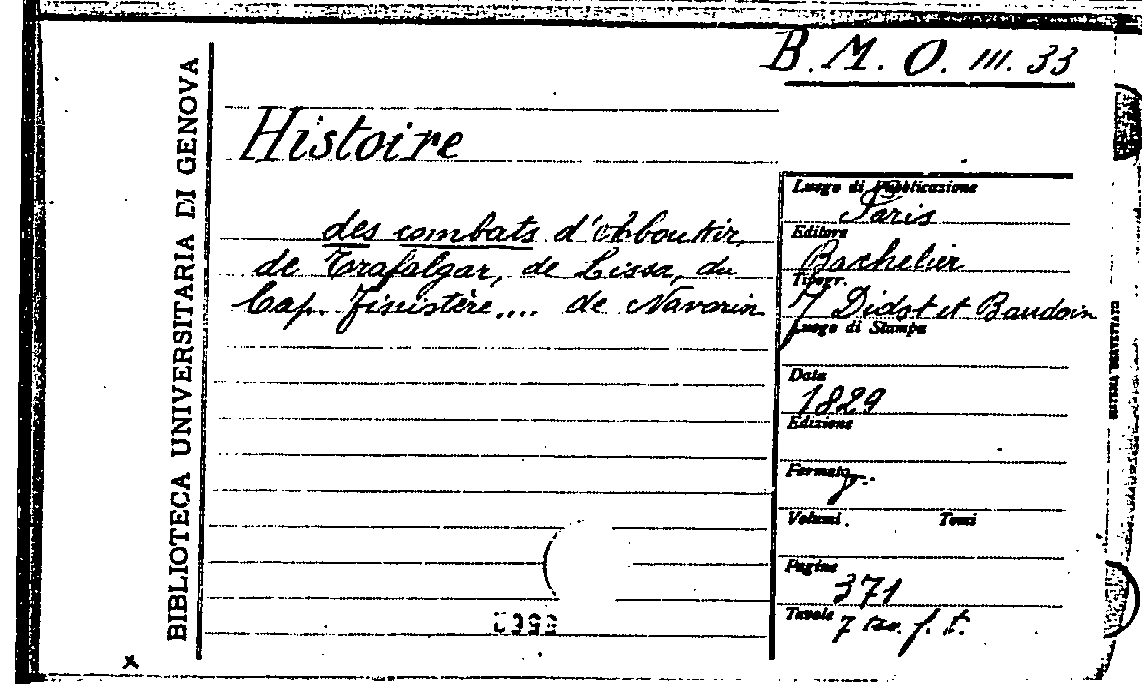 B. M. O. III. 33
BIBLIOTECA UNIVERSITARIA DI GENOVA
Histoire
des combats d'Aboukir,
de Trafalgar, de Lissa, du
Cap. Finistère.... de Navarin
Luogo di Pubblicazione
Paris
Editore
Bachelier
Tipogr.
Didot et Baudoin
Luogo di Stampa
Data
1829
Edizione
Formato
Volumi. Tomi
Pagine
371
Tavole
7 tav. f. t.
x